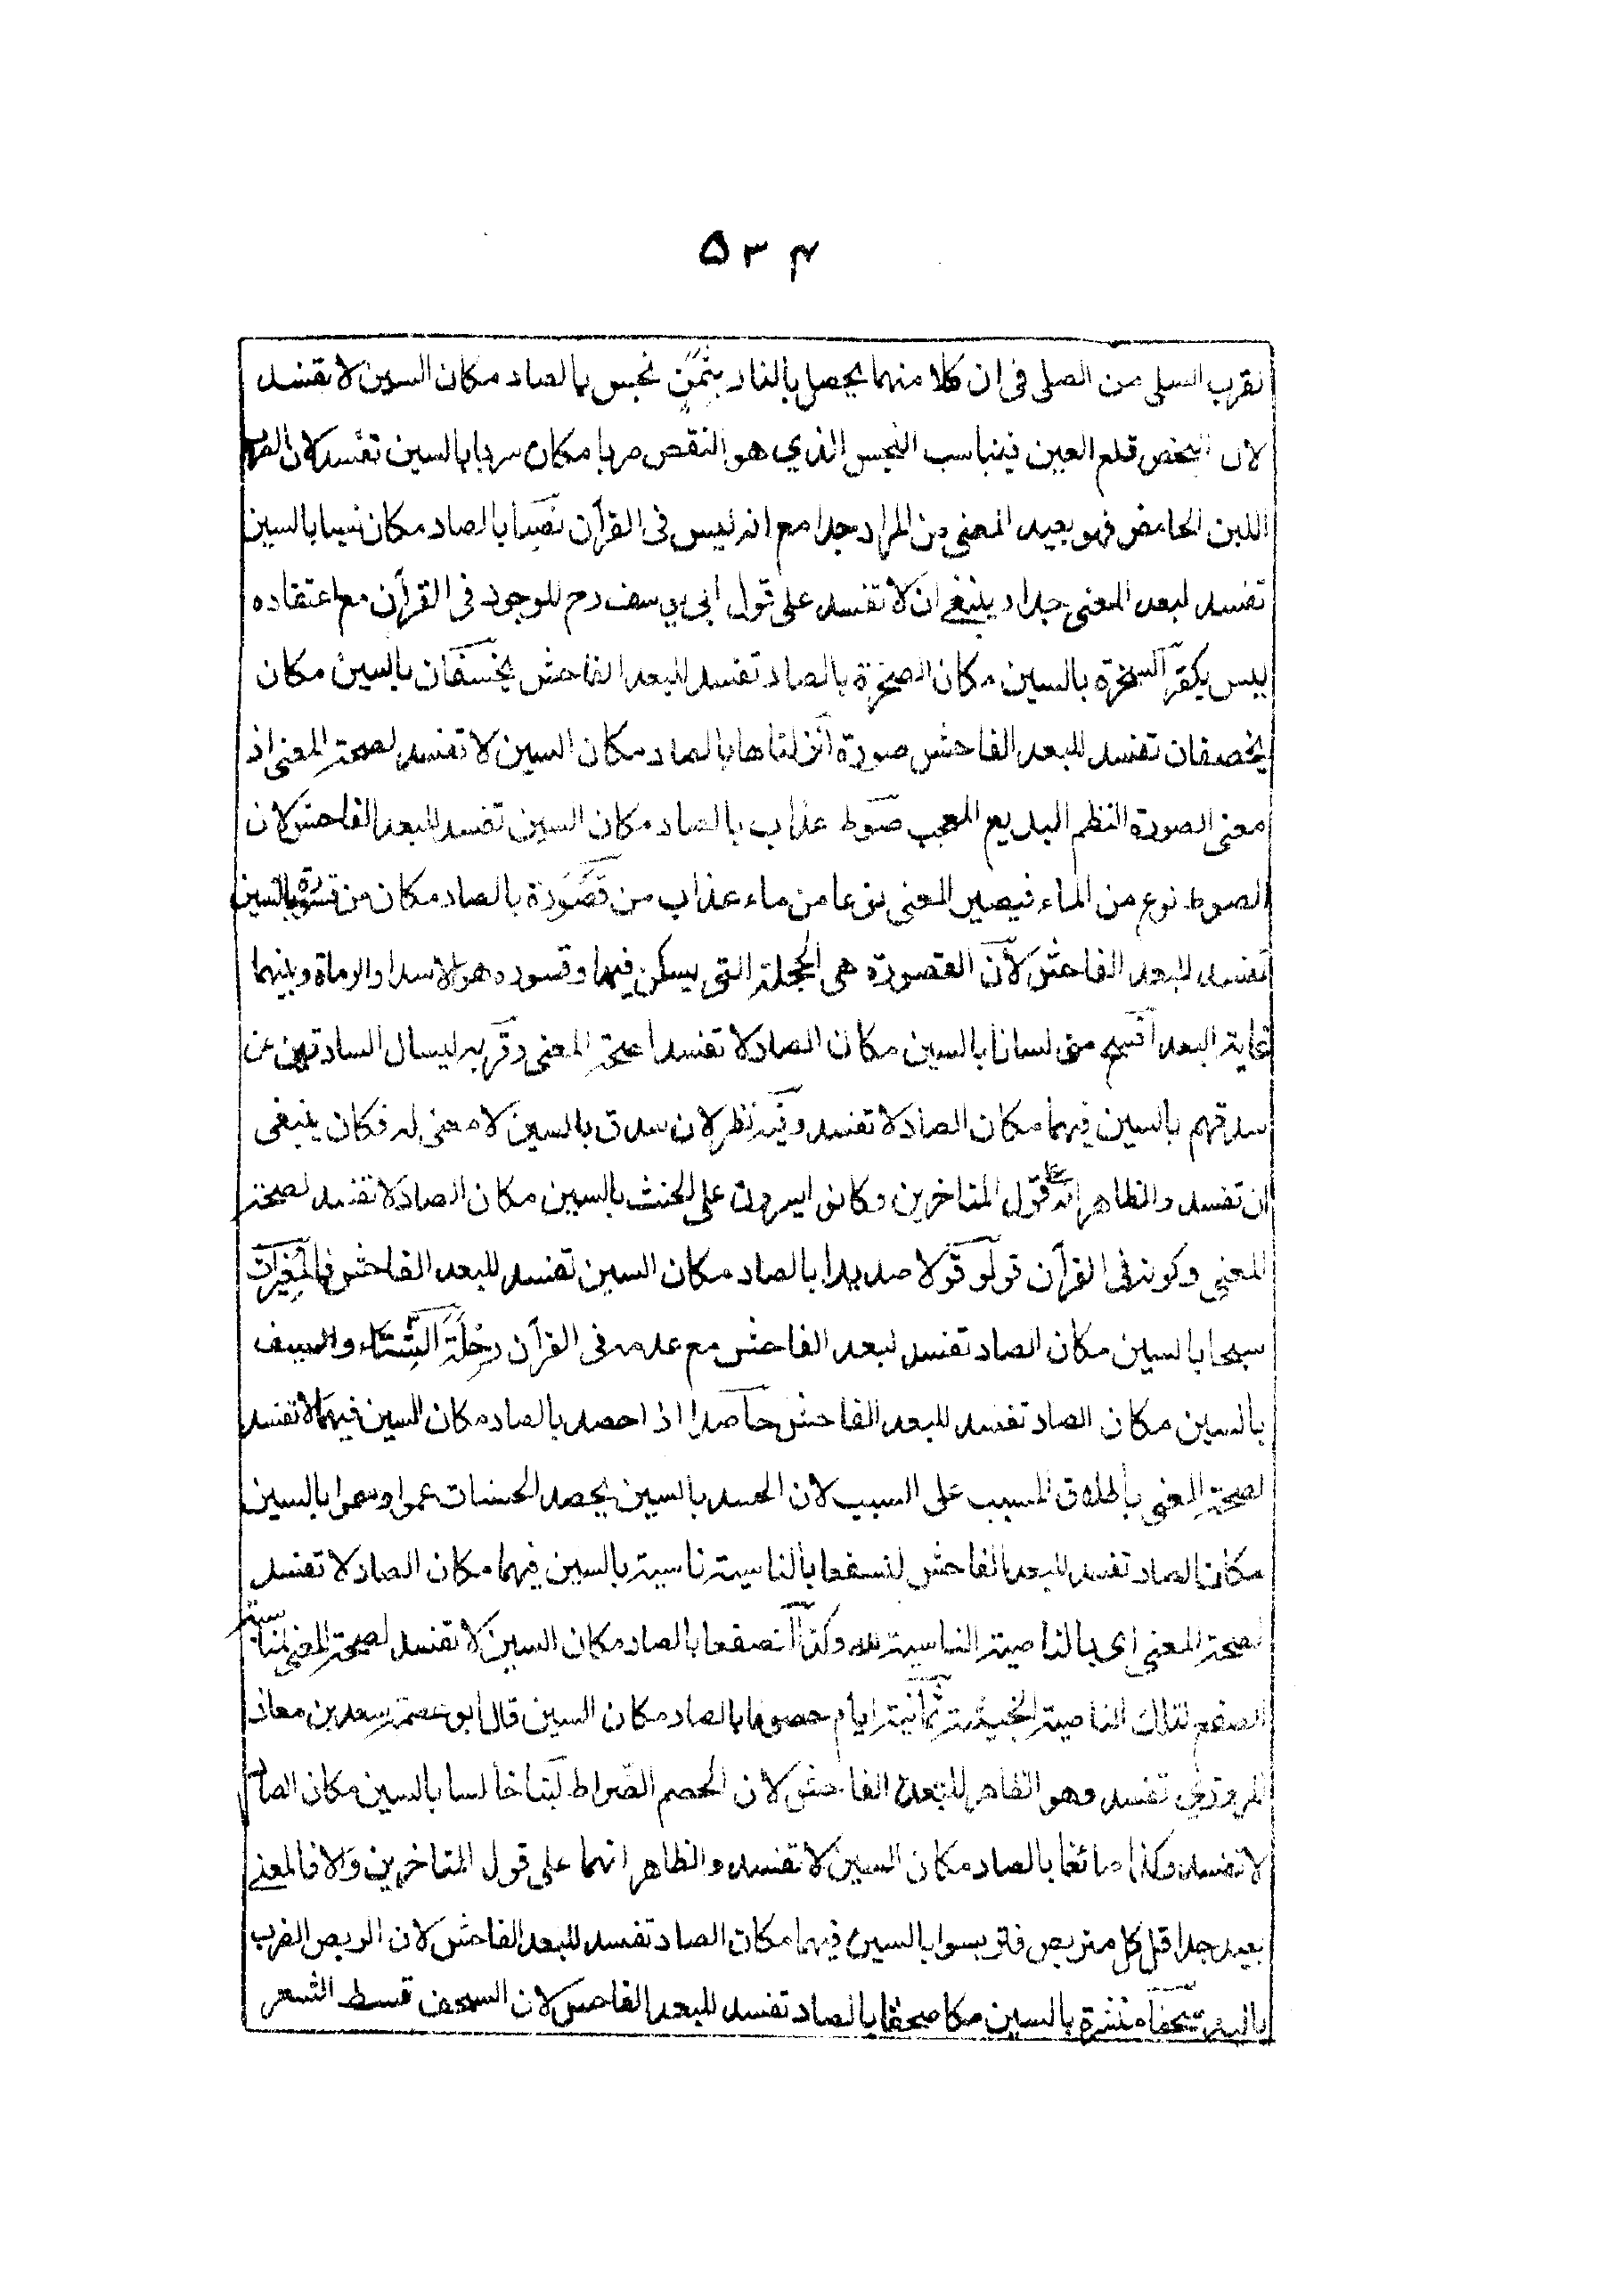 ۵۳۴
لقرب السلى من الصلى فى ان كلا منهما يحصل بالنار بثمن نجس بالصاد مكان السين لا تفسد
لان البخص قلع العين فيناسب النجس الذي هو النقص صربا مكان سربا بالسين تفسد لان الصرب
اللبن الحامض فهو بعيد المعنى من المراد جدا مع انه ليس فى القرآن نصيا بالصاد مكان نسيا بالسين
تفسد لبعد المعنى جدا و ينبغى ان لا تفسد على قول ابى يوسف رح للوجود فى القرآن مع اعتقاده
ليس بكفر السخرة بالسين مكان الصخرة بالصاد تفسد للبعد الفاحش يخسفان بالسين مكان
يخصفان تفسد للبعد الفاحش صورة انزلناها بالصاد مكان السين لا تفسد لصحة المعنى اذ
معنى الصورة النظم البديع المعجب صوط عذاب بالصاد مكان السين تفسد للبعد الفاحش لان
الصوط نوع من الماء فيصير المعنى نوعا من ماء عذاب من قصورة بالصاد مكان من قسورة بالسين
تفسد للبعد الفاحش لان القصورة هى الحجلة التى يسكن فيها و قسوره هو الاسد او الرماة و بينهما
غاية البعد افسح منى لسانا بالسين مكان الصاد لا تفسد لصحة المعنى و قربه ليسال السادقين عن
سدقهم بالسين فيهما مكان الصاد لا تفسد و فيه نظر لان سدق بالسين لا معنى له فكان ينبغى
ان تفسد و الظاهر انه على قول المتاخرين و كانوا يسرون على الحنث بالسين مكان الصاد لا تفسد لصحة
المعنى و كونه فى القرآن قولوا قولا صديدا بالصاد مكان السين تفسد للبعد الفاحش فالمغيرات
سبحا بالسين مكان الصاد تفسد لبعد الفاحش مع عدمه فى القرآن رحلة الشتاء و السيف
بالسين مكان الصاد تفسد للبعد الفاحش حاصد اذا حصد بالصاد مكان السين فيهما لا تفسد
لصحة المعنى باطلاق المسبب على السبب لان الحسد بالسين يحصد الحسنات عموا و سموا بالسين
مكان الصاد تفسد للبعد الفاحش لنسفعا بالناسية ناسية بالسين فيهما مكان الصاد لا تفسد
لصحة المعنى اى بالناصية الناسية لله و كذا لنصفعا بالصاد مكان السين لا تفسد لصحة المعنى لمناسبة
الصفع لتلك الناصية الخبيثة ثمانية ايام حصوما بالصاد مكان السين قال ابو عصمة سعد بن معاذ
المروزى تفسد و هو الظاهر للبعد الفاحش لان الحصم الضراط لبنا خالسا بالسين مكان الصاد
لا تفسد و كذا صائغا بالصاد مكان السين لا تفسد و الظاهر انهما على قول المتاخرين و الا فالمعنى
بعيد جدا قل كل متربص فتربسوا بالسين فيهما مكان الصاد تفسد للبعد الفاحش لان الربس الضرب
باليد سحفا منشرة بالسين مكا صحفا بالصاد تفسد للبعد الفاحش لان السحف قسط الشعر